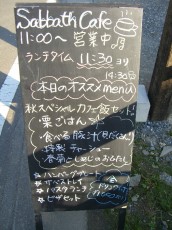 Sabbath Cafe
11:00〜 営業中
ランチタイム 11:30ヨリ
14:30
本日のオススメmenu
秋スペシャルカフェ飯セット!
・栗ごはん
・食べる豚汁
・特製チャーシュー
・春菊としめじのおひたし
ハンバーグプレート
オベストレイ
パスタランチ
ピザセット